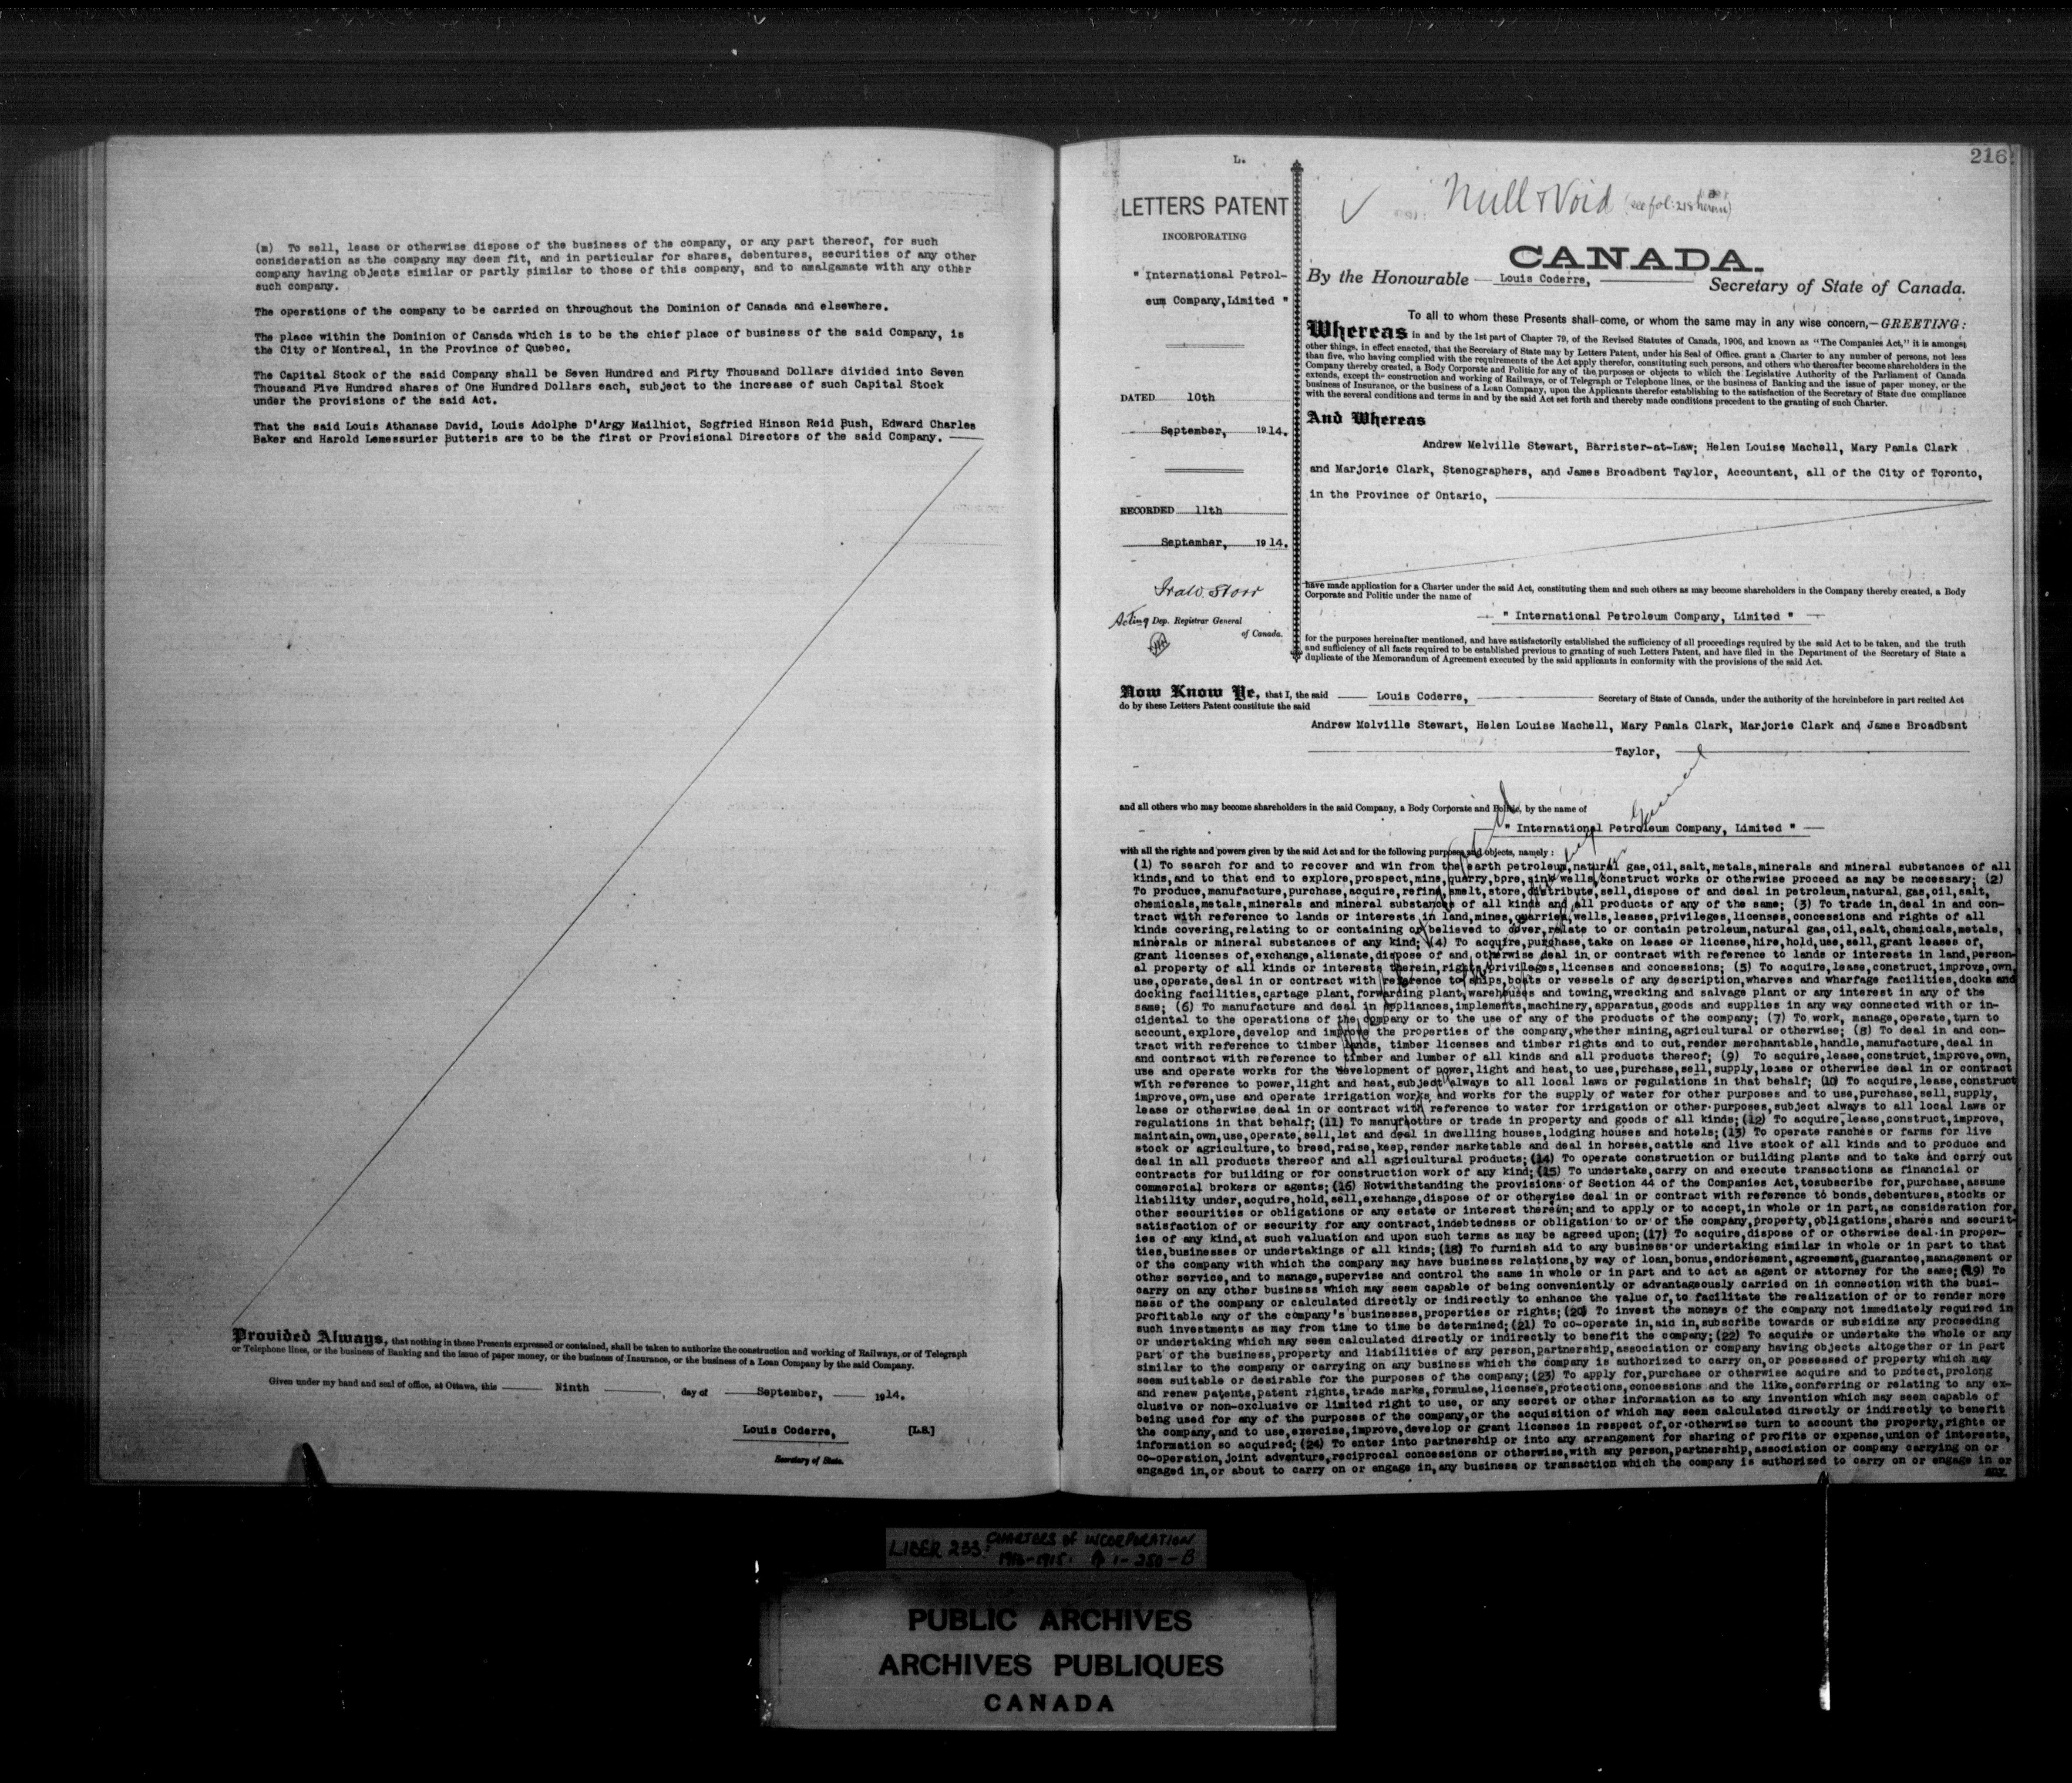 (m) To sell, lease or otherwise dispose of the business of the company, or any part thereof, for such
consideration as the company may deem fit, and in particular for shares, debentures, securities of any other
company having objects similar or partly similar to those of this company, and to amalgamate with any other
such company.
The operations of the company to be carried on throughout the Dominion of Canada and elsewhere.
The place within the Dominion of Canada which is to be the chief place of business of the said Company, is
the City of Montreal, in the Province of Quebec.
The Capital Stock of the said Company shall be Seven Hundred and Fifty Thousand Dollars divided into Seven
Thousand Five Hundred shares of One Hundred Dollars each, subject to the increase of such Capital Stock
under the provisions of the said Act.
That the said Louis Athanase David, Louis Adolphe D'Argy Mailhiot, Segfried Hinson Reid Bush, Edward Charles
Baker and Harold Lemessurier Butteris are to be the first or Provisional Directors of the said Company.
Provided Always, that nothing in these Presents expressed or contained, shall be taken to authorize the construction and working of Railways, or of Telegraph
or Telephone lines, or the business of Banking and the issue of paper money, or the business of Insurance, or the business of a Loan Company by the said Company.
Given under my hand and seal of office, at Ottawa, this Ninth, day of September, 1914.
Louis Coderre, [L.S.]
Secretary of State.
216
L.
LETTERS PATENT
INCORPORATING
" International Petrol-
eum Company, Limited "
DATED 10th
September, 1914.
RECORDED 11th
September, 1914.
Acting Dep. Registrar General
of Canada.
Null & Void (see fol: 218 herein)
CANADA.
By the Honourable Louis Coderre, Secretary of State of Canada.
To all to whom these Presents shall come, or whom the same may in any wise concern,—GREETING:
Whereas in and by the 1st part of Chapter 79, of the Revised Statutes of Canada, 1906, and known as "The Companies Act," it is amongst
other things, in effect enacted, that the Secretary of State may by Letters Patent, under his Seal of Office, grant a Charter to any number of persons, not less
than five, who having complied with the requirements of the Act apply therefor, constituting such persons, and others who thereafter become shareholders in the
Company thereby created, a Body Corporate and Politic for any of the purposes or objects to which the Legislative Authority of the Parliament of Canada
extends, except the construction and working of Railways, or of Telegraph or Telephone lines, or the business of Banking and the issue of paper money, or the
business of Insurance, or the business of a Loan Company, upon the Applicants therefor establishing to the satisfaction of the Secretary of State due compliance
with the several conditions and terms in and by the said Act set forth and thereby made conditions precedent to the granting of such Charter.
And Whereas
Andrew Melville Stewart, Barrister-at-Law; Helen Louise Machell, Mary Pamla Clark
and Marjorie Clark, Stenographers, and James Broadbent Taylor, Accountant, all of the City of Toronto,
in the Province of Ontario,
have made application for a Charter under the said Act, constituting them and such others as may become shareholders in the Company thereby created, a Body
Corporate and Politic under the name of
" International Petroleum Company, Limited "
for the purposes hereinafter mentioned, and have satisfactorily established the sufficiency of all proceedings required by the said Act to be taken, and the truth
and sufficiency of all facts required to be established previous to granting of such Letters Patent, and have filed in the Department of the Secretary of State a
duplicate of the Memorandum of Agreement executed by the said applicants in conformity with the provisions of the said Act.
Now Know Ye, that I, the said Louis Coderre, Secretary of State of Canada, under the authority of the hereinbefore in part recited Act
do by these Letters Patent constitute the said
Andrew Melville Stewart, Helen Louise Machell, Mary Pamla Clark, Marjorie Clark and James Broadbent
Taylor,
and all others who may become shareholders in the said Company, a Body Corporate and Politic, by the name of
" International Petroleum Company, Limited "
with all the rights and powers given by the said Act and for the following purposes and objects, namely:
(1) To search for and to recover and win from the earth petroleum, natural gas, oil, salt, metals, minerals and mineral substances of all
kinds, and to that end to explore, prospect, mine, quarry, bore, sink wells, construct works or otherwise proceed as may be necessary; (2)
To produce, manufacture, purchase, acquire, refine, smelt, store, distribute, sell, dispose of and deal in petroleum, natural gas, oil, salt,
chemicals, metals, minerals and mineral substances of all kinds and all products of any of the same; (3) To trade in, deal in and con-
tract with reference to lands or interests in land, mines, quarries, wells, leases, privileges, licenses, concessions and rights of all
kinds covering, relating to or containing or believed to cover, relate to or contain petroleum, natural gas, oil, salt, chemicals, metals,
minerals or mineral substances of any kind; (4) To acquire, purchase, take on lease or license, hire, hold, use, sell, grant leases of,
grant licenses of, exchange, alienate, dispose of and otherwise deal in or contract with reference to lands or interests in land, person-
al property of all kinds or interests therein, rights, privileges, licenses and concessions; (5) To acquire, lease, construct, improve, own,
use, operate, deal in or contract with reference to ships, boats or vessels of any description, wharves and wharfage facilities, docks and
docking facilities, cartage plant, forwarding plant, warehouses and towing, wrecking and salvage plant or any interest in any of the
same; (6) To manufacture and deal in appliances, implements, machinery, apparatus, goods and supplies in any way connected with or in-
cidental to the operations of the company or to the use of any of the products of the company; (7) To work, manage, operate, turn to
account, explore, develop and improve the properties of the company, whether mining, agricultural or otherwise; (8) To deal in and con-
tract with reference to timber lands, timber licenses and timber rights and to cut, render merchantable, handle, manufacture, deal in
and contract with reference to timber and lumber of all kinds and all products thereof; (9) To acquire, lease, construct, improve, own,
use and operate works for the development of power, light and heat, to use, purchase, sell, supply, lease or otherwise deal in or contract
with reference to power, light and heat, subject always to all local laws or regulations in that behalf; (10) To acquire, lease, construct
improve, own, use and operate irrigation works, and works for the supply of water for other purposes and to use, purchase, sell, supply,
lease or otherwise deal in or contract with reference to water for irrigation or other purposes, subject always to all local laws or
regulations in that behalf; (11) To manufacture or trade in property and goods of all kinds; (12) To acquire, lease, construct, improve,
maintain, own, use, operate, sell, let and deal in dwelling houses, lodging houses and hotels; (13) To operate ranches or farms for live
stock or agriculture, to breed, raise, keep, render marketable and deal in horses, cattle and live stock of all kinds and to produce and
deal in all products thereof and all agricultural products; (14) To operate construction or building plants and to take and carry out
contracts for building or for construction work of any kind; (15) To undertake, carry on and execute transactions as financial or
commercial brokers or agents; (16) Notwithstanding the provisions of Section 44 of the Companies Act, tosubscribe for, purchase, assume
liability under, acquire, hold, sell, exchange, dispose of or otherwise deal in or contract with reference to bonds, debentures, stocks or
other securities or obligations or any estate or interest therein; and to apply or to accept, in whole or in part, as consideration for,
satisfaction of or security for any contract, indebtedness or obligation to or of the company, property, obligations, shares and securit-
ies of any kind, at such valuation and upon such terms as may be agreed upon; (17) To acquire, dispose of or otherwise deal in proper-
ties, businesses or undertakings of all kinds; (18) To furnish aid to any business or undertaking similar in whole or in part to that
of the company with which the company may have business relations, by way of loan, bonus, endorsement, agreement, guarantee, management or
other service, and to manage, supervise and control the same in whole or in part and to act as agent or attorney for the same; (19) To
carry on any other business which may seem capable of being conveniently or advantageously carried on in connection with the busi-
ness of the company or calculated directly or indirectly to enhance the value of, to facilitate the realization of or to render more
profitable any of the company's businesses, properties or rights; (20) To invest the moneys of the company not immediately required in
such investments as may from time to time be determined; (21) To co-operate in, aid in, subscribe towards or subsidize any proceeding
or undertaking which may seem calculated directly or indirectly to benefit the company; (22) To acquire or undertake the whole or any
part of the business, property and liabilities of any person, partnership, association or company having objects altogether or in part
similar to the company or carrying on any business which the company is authorized to carry on, or possessed of property which may
seem suitable or desirable for the purposes of the company; (23) To apply for, purchase or otherwise acquire and to protect, prolong
and renew patents, patent rights, trade marks, formulae, licenses, protections, concessions and the like, conferring or relating to any ex-
clusive or non-exclusive or limited right to use, or any secret or other information as to any invention which may seem capable of
being used for any of the purposes of the company, or the acquisition of which may seem calculated directly or indirectly to benefit
the company, and to use, exercise, improve, develop or grant licenses in respect of, or otherwise turn to account the property, rights or
information so acquired; (24) To enter into partnership or into any arrangement for sharing of profits or expense, union of interests,
co-operation, joint adventure, reciprocal concessions or otherwise, with any person, partnership, association or company carrying on or
engaged in, or about to carry on or engage in, any business or transaction which the company is authorized to carry on or engage in or
any
LIBER 233: CHARTERS of INCORPORATION
PUBLIC ARCHIVES
ARCHIVES PUBLIQUES
CANADA